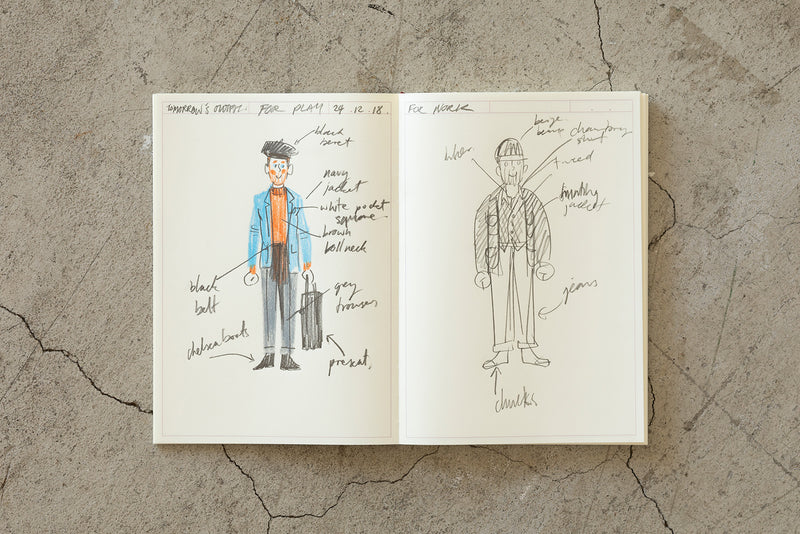 TOMORROW'S OUTFIT FOR PLAY 24 . 12 . 18 .
black
beret
navy
jacket
white pocket
square
brown
roll neck
black
belt
grey
trousers
chelsea boots
present.
FOR WORK
beige
chambray
shirt
tweed
jacket
jeans
chucks